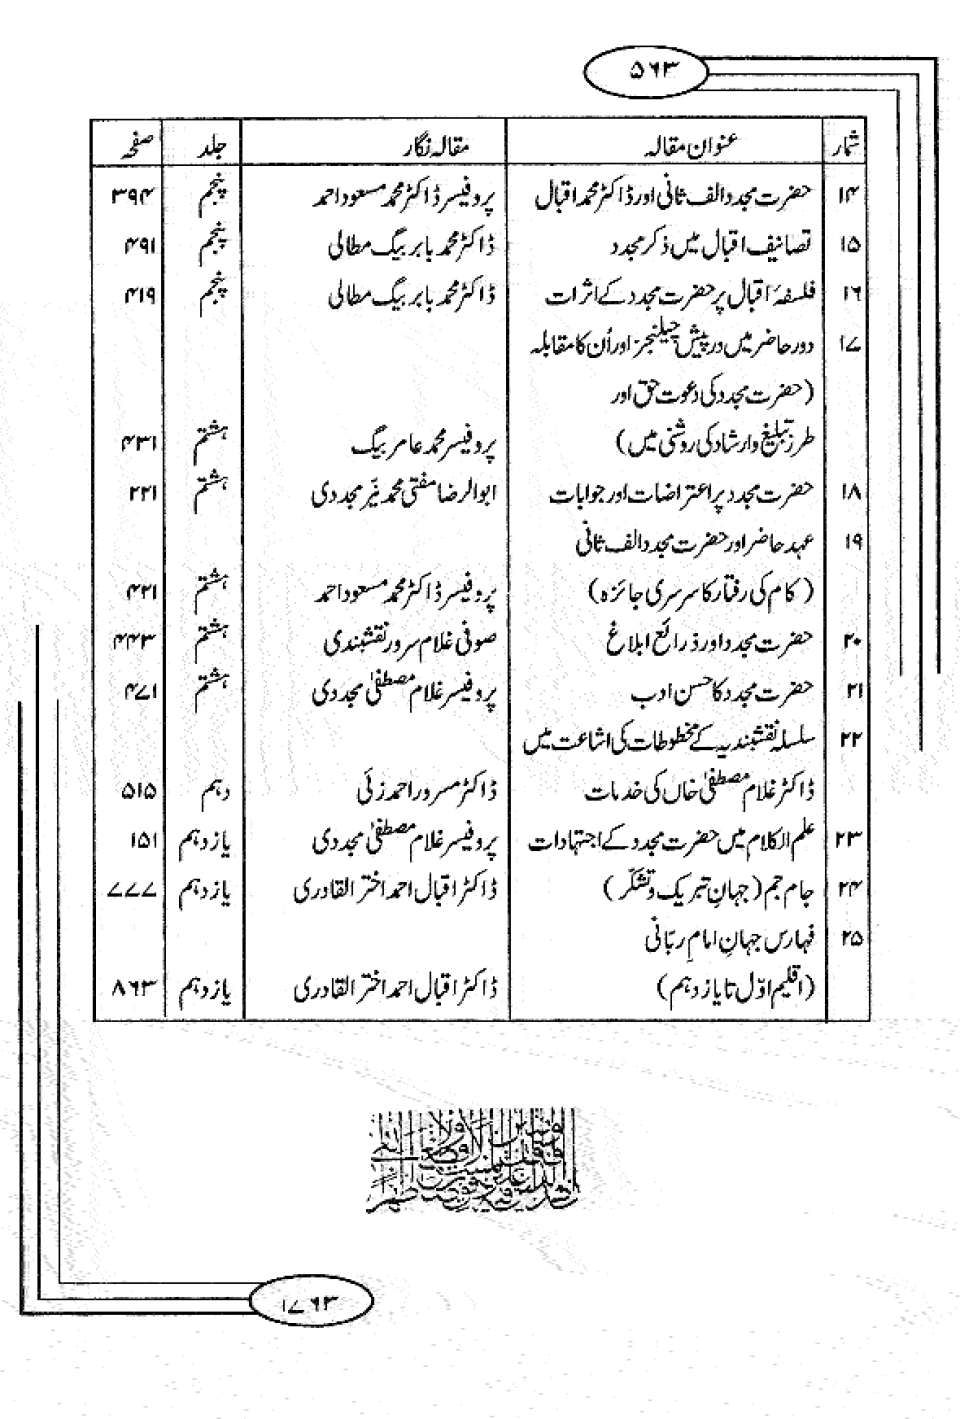 ۵۶۳
شمار عنوان مقالہ مقالہ نگار جلد صفحہ
۱۴ حضرت مجدد الف ثانی اور ڈاکٹر محمد اقبال پروفیسر ڈاکٹر محمد مسعود احمد پنجم ۳۹۴
۱۵ تصانیف اقبال میں ذکر مجدد ڈاکٹر محمد بابر بیگ مطالی پنجم ۴۹۱
۱۶ فلسفۂ اقبال پر حضرت مجدد کے اثرات ڈاکٹر محمد بابر بیگ مطالی پنجم ۴۱۹
۱۷ دور حاضر میں درپیش چیلنجز اور اُن کا مقابلہ
(حضرت مجدد کی دعوت حق اور
طرز تبلیغ و ارشاد کی روشنی میں) پروفیسر محمد عامر بیگ ہشتم ۴۳۱
۱۸ حضرت مجدد پر اعتراضات اور جوابات ابوالرضا مفتی محمد نیّر مجددی ہشتم ۲۲۱
۱۹ عہد حاضر اور حضرت مجدد الف ثانی
(کام کی رفتار کا سرسری جائزہ) پروفیسر ڈاکٹر محمد مسعود احمد ہشتم ۴۲۱
۲۰ حضرت مجدد اور ذرائع ابلاغ صوفی غلام سرور نقشبندی ہشتم ۴۴۳
۲۱ حضرت مجدد کا حسن ادب پروفیسر غلام مصطفیٰ مجددی ہشتم ۴۷۱
۲۲ سلسلہ نقشبندیہ کے مخطوطات کی اشاعت میں
ڈاکٹر غلام مصطفیٰ خاں کی خدمات ڈاکٹر مسرور احمد زئی دہم ۵۱۵
۲۳ علم الکلام میں حضرت مجدد کے اجتہادات پروفیسر غلام مصطفیٰ مجددی یازدہم ۱۵۱
۲۴ جام جم (جہانِ تبریک و تشکّر) ڈاکٹر اقبال احمد اختر القادری یازدہم ۷۷۷
۲۵ فہارس جہانِ امامِ ربّانی
(اقلیم اوّل تا یازدہم) ڈاکٹر اقبال احمد اختر القادری یازدہم ۸۶۳
۱۷۶۳